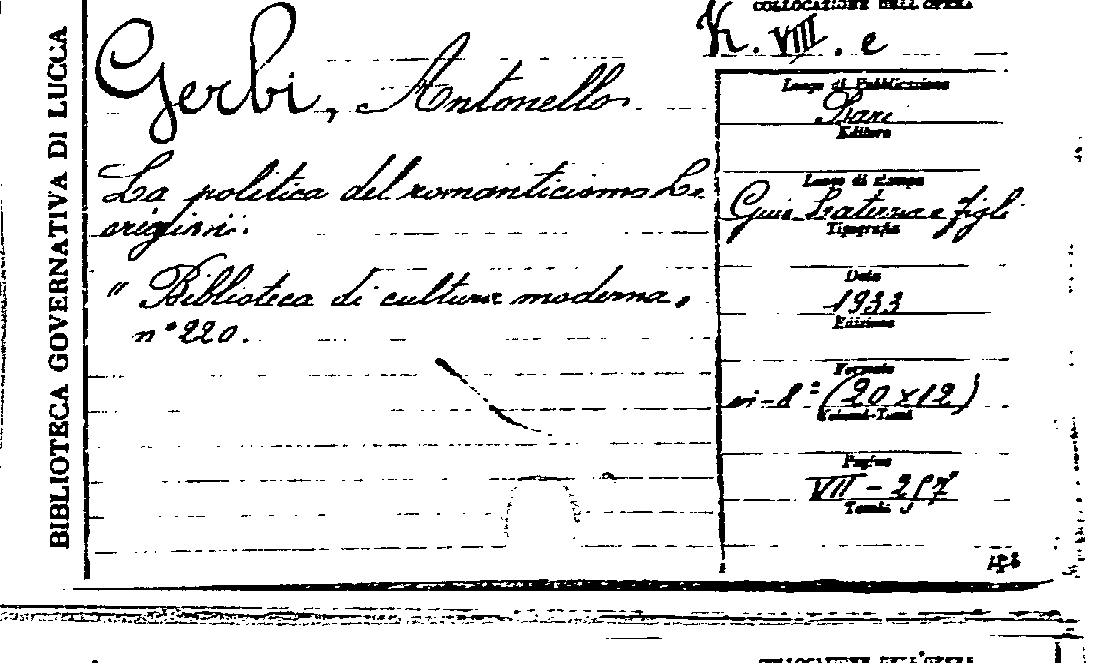 BIBLIOTECA GOVERNATIVA DI LUCCA
COLLOCAZIONE DELL'OPERA
K. VIII. e
Gerbi, Antonello.
La politica del romanticismo Le
origini.
" Biblioteca di cultura moderna "
n° 220.
Luogo di Pubblicazione
Bari
Editore
Luogo di stampa
Gius Laterza e figli
Tipografia
Data
1933
Edizione
Formato
in-8° (20x12)
Volumi-Tomi
Pagine
VII - 257
Tomi
COLLOCAZIONE DELL'OPERA